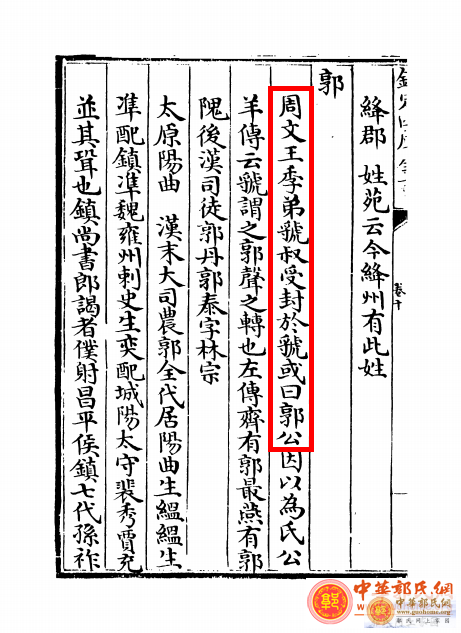 絳郡 姓苑云今絳州有此姓
郭
周文王季弟虢叔受封於虢或曰郭公因以為氏公
羊傳云虢謂之郭聲之轉也左傳齊有郭最燕有郭
隗後漢司徒郭丹郭泰字林宗
太原陽曲 漢末大司農郭全代居陽曲生縕縕生
淮配鎮淮魏雍州刺史生奕配城陽太守裴秀賈充
並其壻也鎮尚書郎謁者僕射昌平侯鎮七代孫祚
卷十
中華郭氏網
中華郭氏網
www.guohome.org
郭氏網上家園